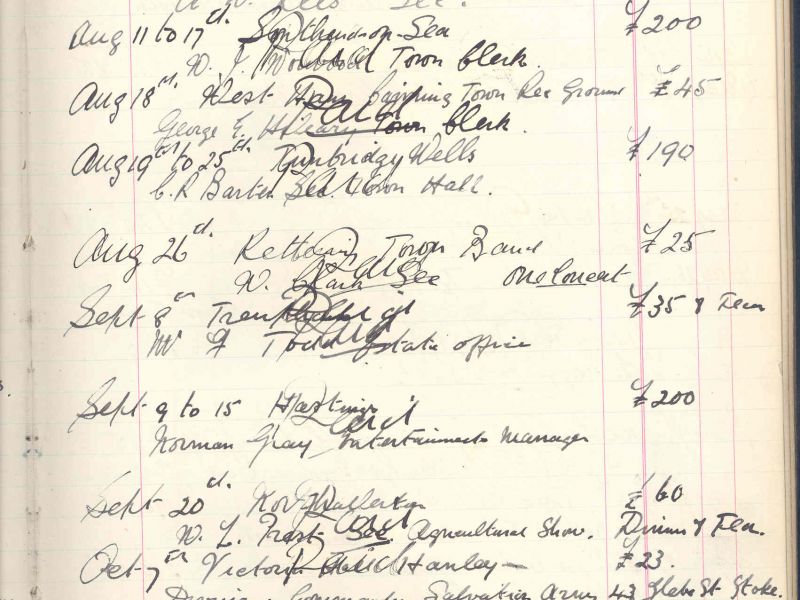 Aug 11 to 17th Southend-on-Sea £200
W. J. Town Clerk.
Aug 18th West Ham Town Rec Ground £45
George E. Hilleary Town Clerk.
Aug 19th to 25th Tunbridge Wells £190
C. R Barter Sec. Town Hall.
Aug 26th. Kettering Town Band £25
W. Clark Sec One Concert
Sept 8th £35 & Teas
Mr F Todd Estate office
Sept 9 to 15 Hastings £200
Norman Gray Entertainments Manager
Sept 20th. £60
W. L. Frost Sec Agricultural Show. Dinner & Tea.
Oct 7th Victoria Hall Hanley — £23.
Salvation Army 43 Glebe St Stoke.